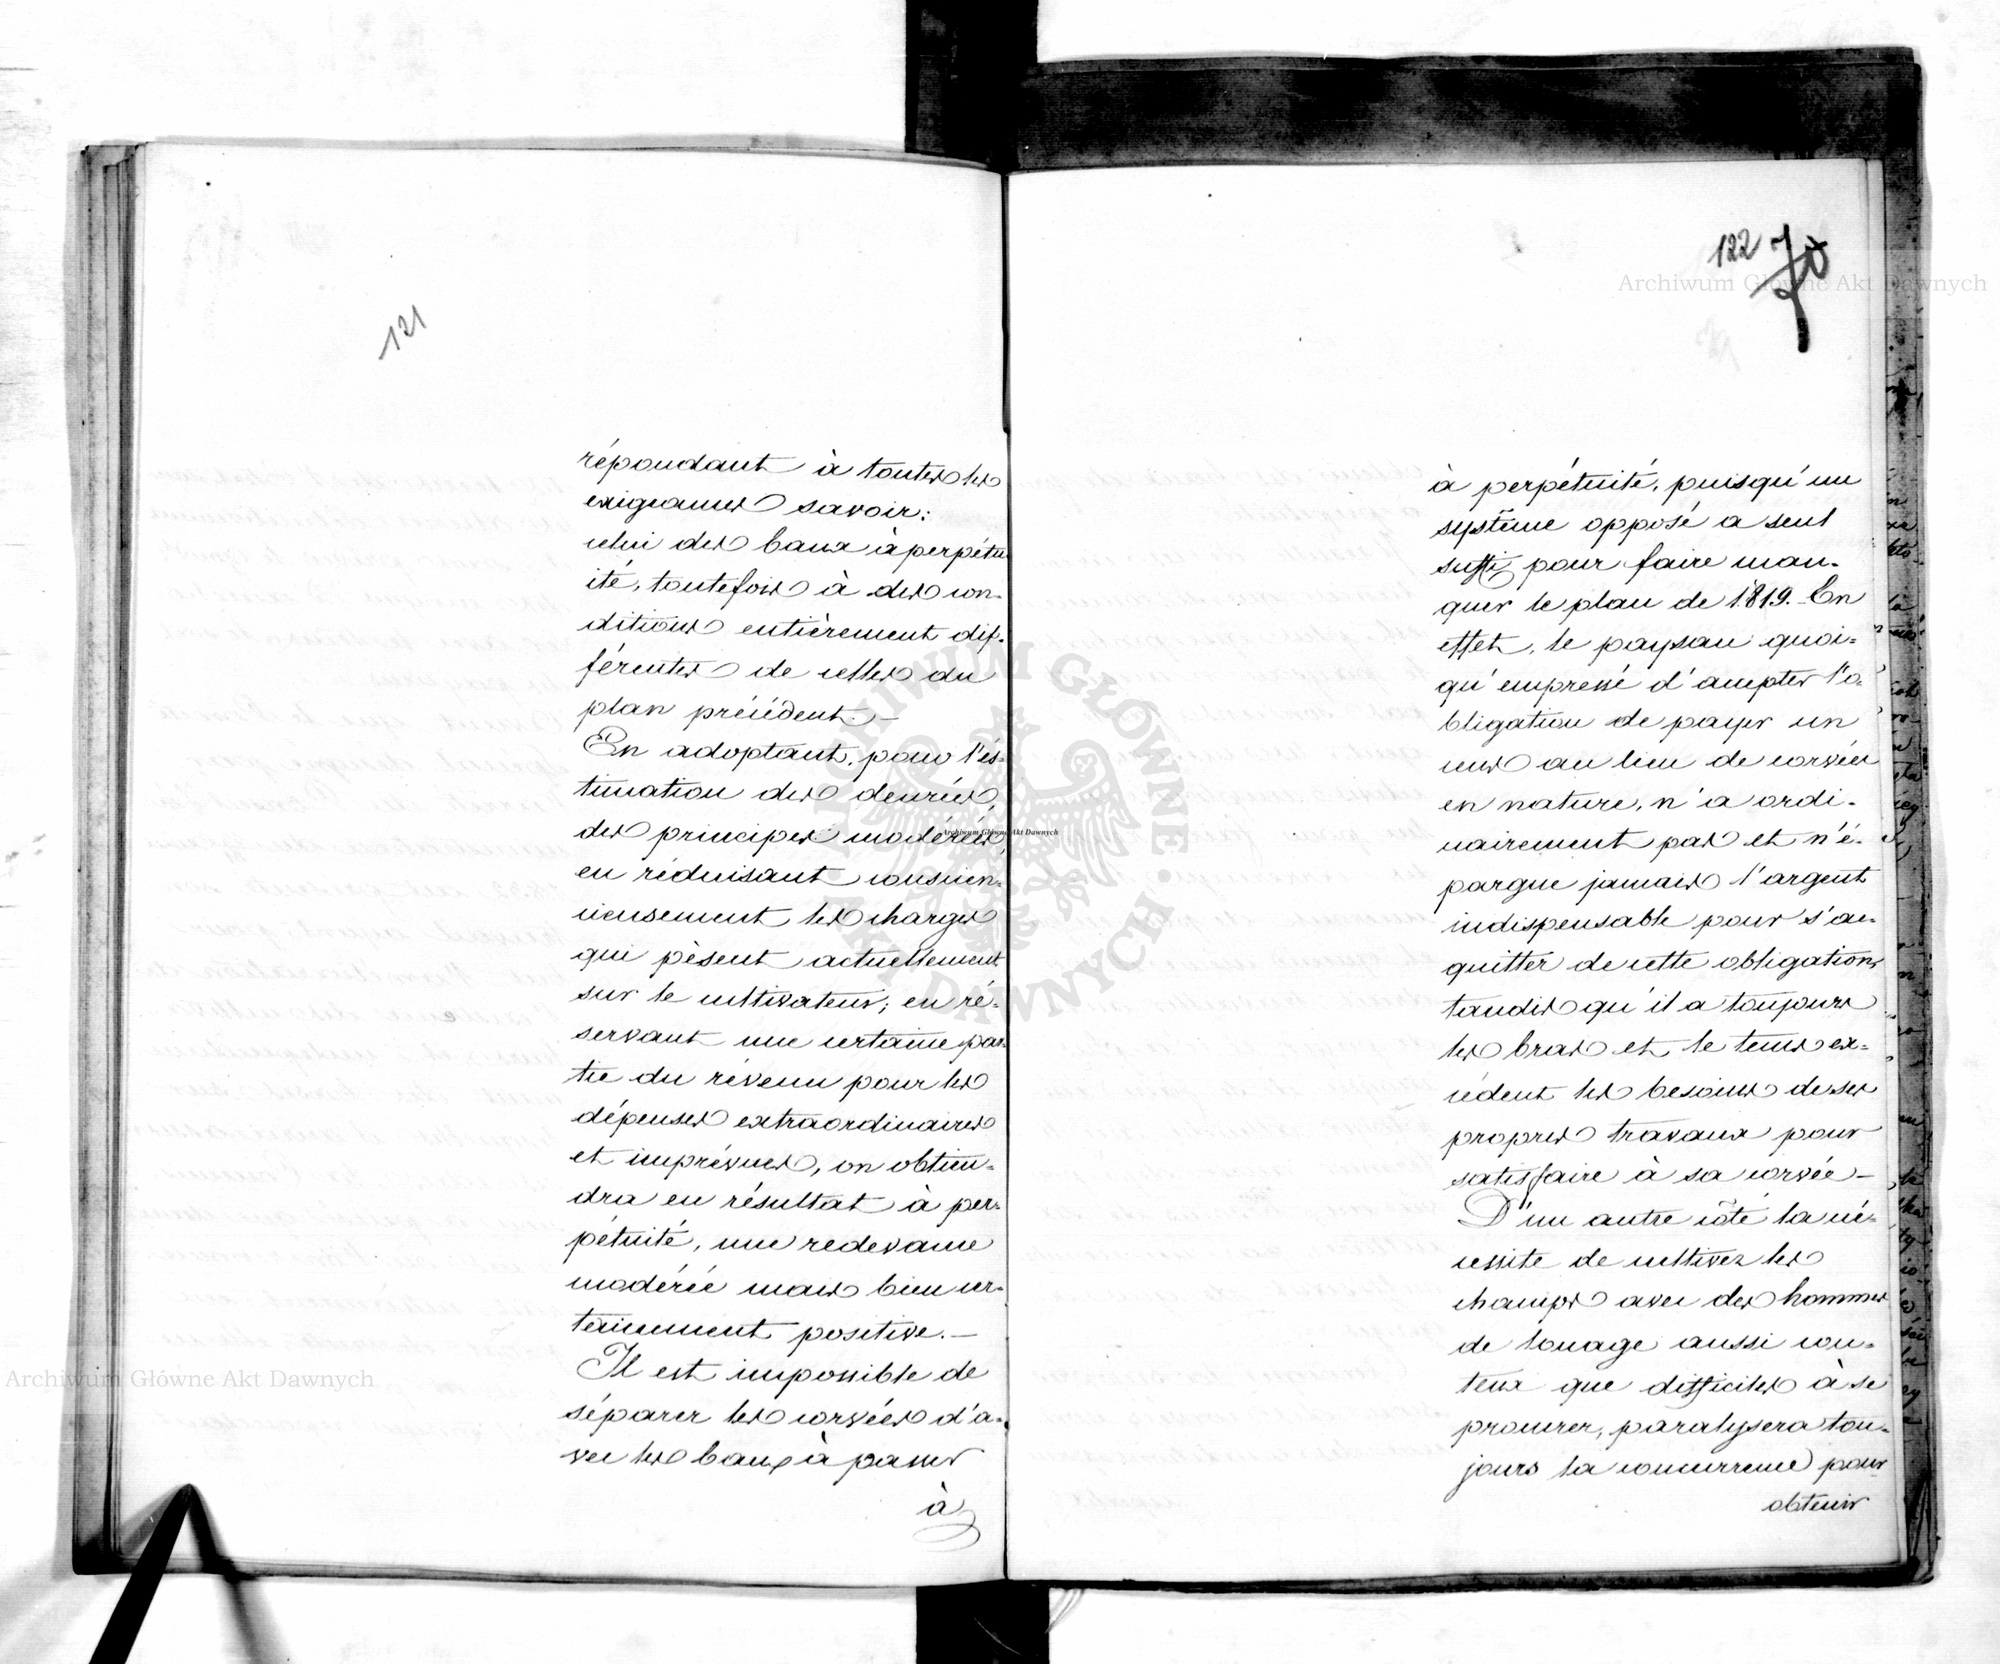 121
répondant à toutes les
exigeances savoir:
celui des baux à perpétu
ité, toutefois à des con-
ditions entièrement dif-
férentes de celles du
plan précédent.—
En adoptant, pour l'és-
timation des denrées,
des principes modérés,
en réduisant conscien-
cieusement les charges
qui pèsent actuellement
sur le cultivateur; en ré-
servant une certaine par-
tie du révenu pour les
dépenses extraordinaires
et imprévues, on obtien-
dra en résultat à per-
pétuité, une redevance
modérée mais bien cer-
tainement positive.—
Il est impossible de
séparer les corvées d'a-
vec les baux à passer
à
122 70
à perpétuité, puisqu'un
système opposé a seul
suffi pour faire man-
quer le plan de 1819. En
effet, le paysan quoi-
qu'empressé d'accepter l'o-
bligation de payer un
cens au lieu de corvées
en nature, n'a ordi-
nairement pas et n'é-
pargne jamais l'argent
indispensable pour s'ac-
quitter de cette obligation,
tandis qu'il a toujours
les bras et le tems ex-
cédent les besoins de ses
propres travaux pour
satisfaire à sa corvée—
D'un autre côté la né-
cessite de cultivez les
champs avec des hommes
de louage aussi cou-
teux que difficiles à se
procurer, paralysera tou-
jours la concurrence pour
obtenir
Archiwum Główne Akt Dawnych
Archiwum Główne Akt Dawnych
Archiwum Główne Akt Dawnych
ARCHIWUM GŁÓWNE AKT DAWNYCH